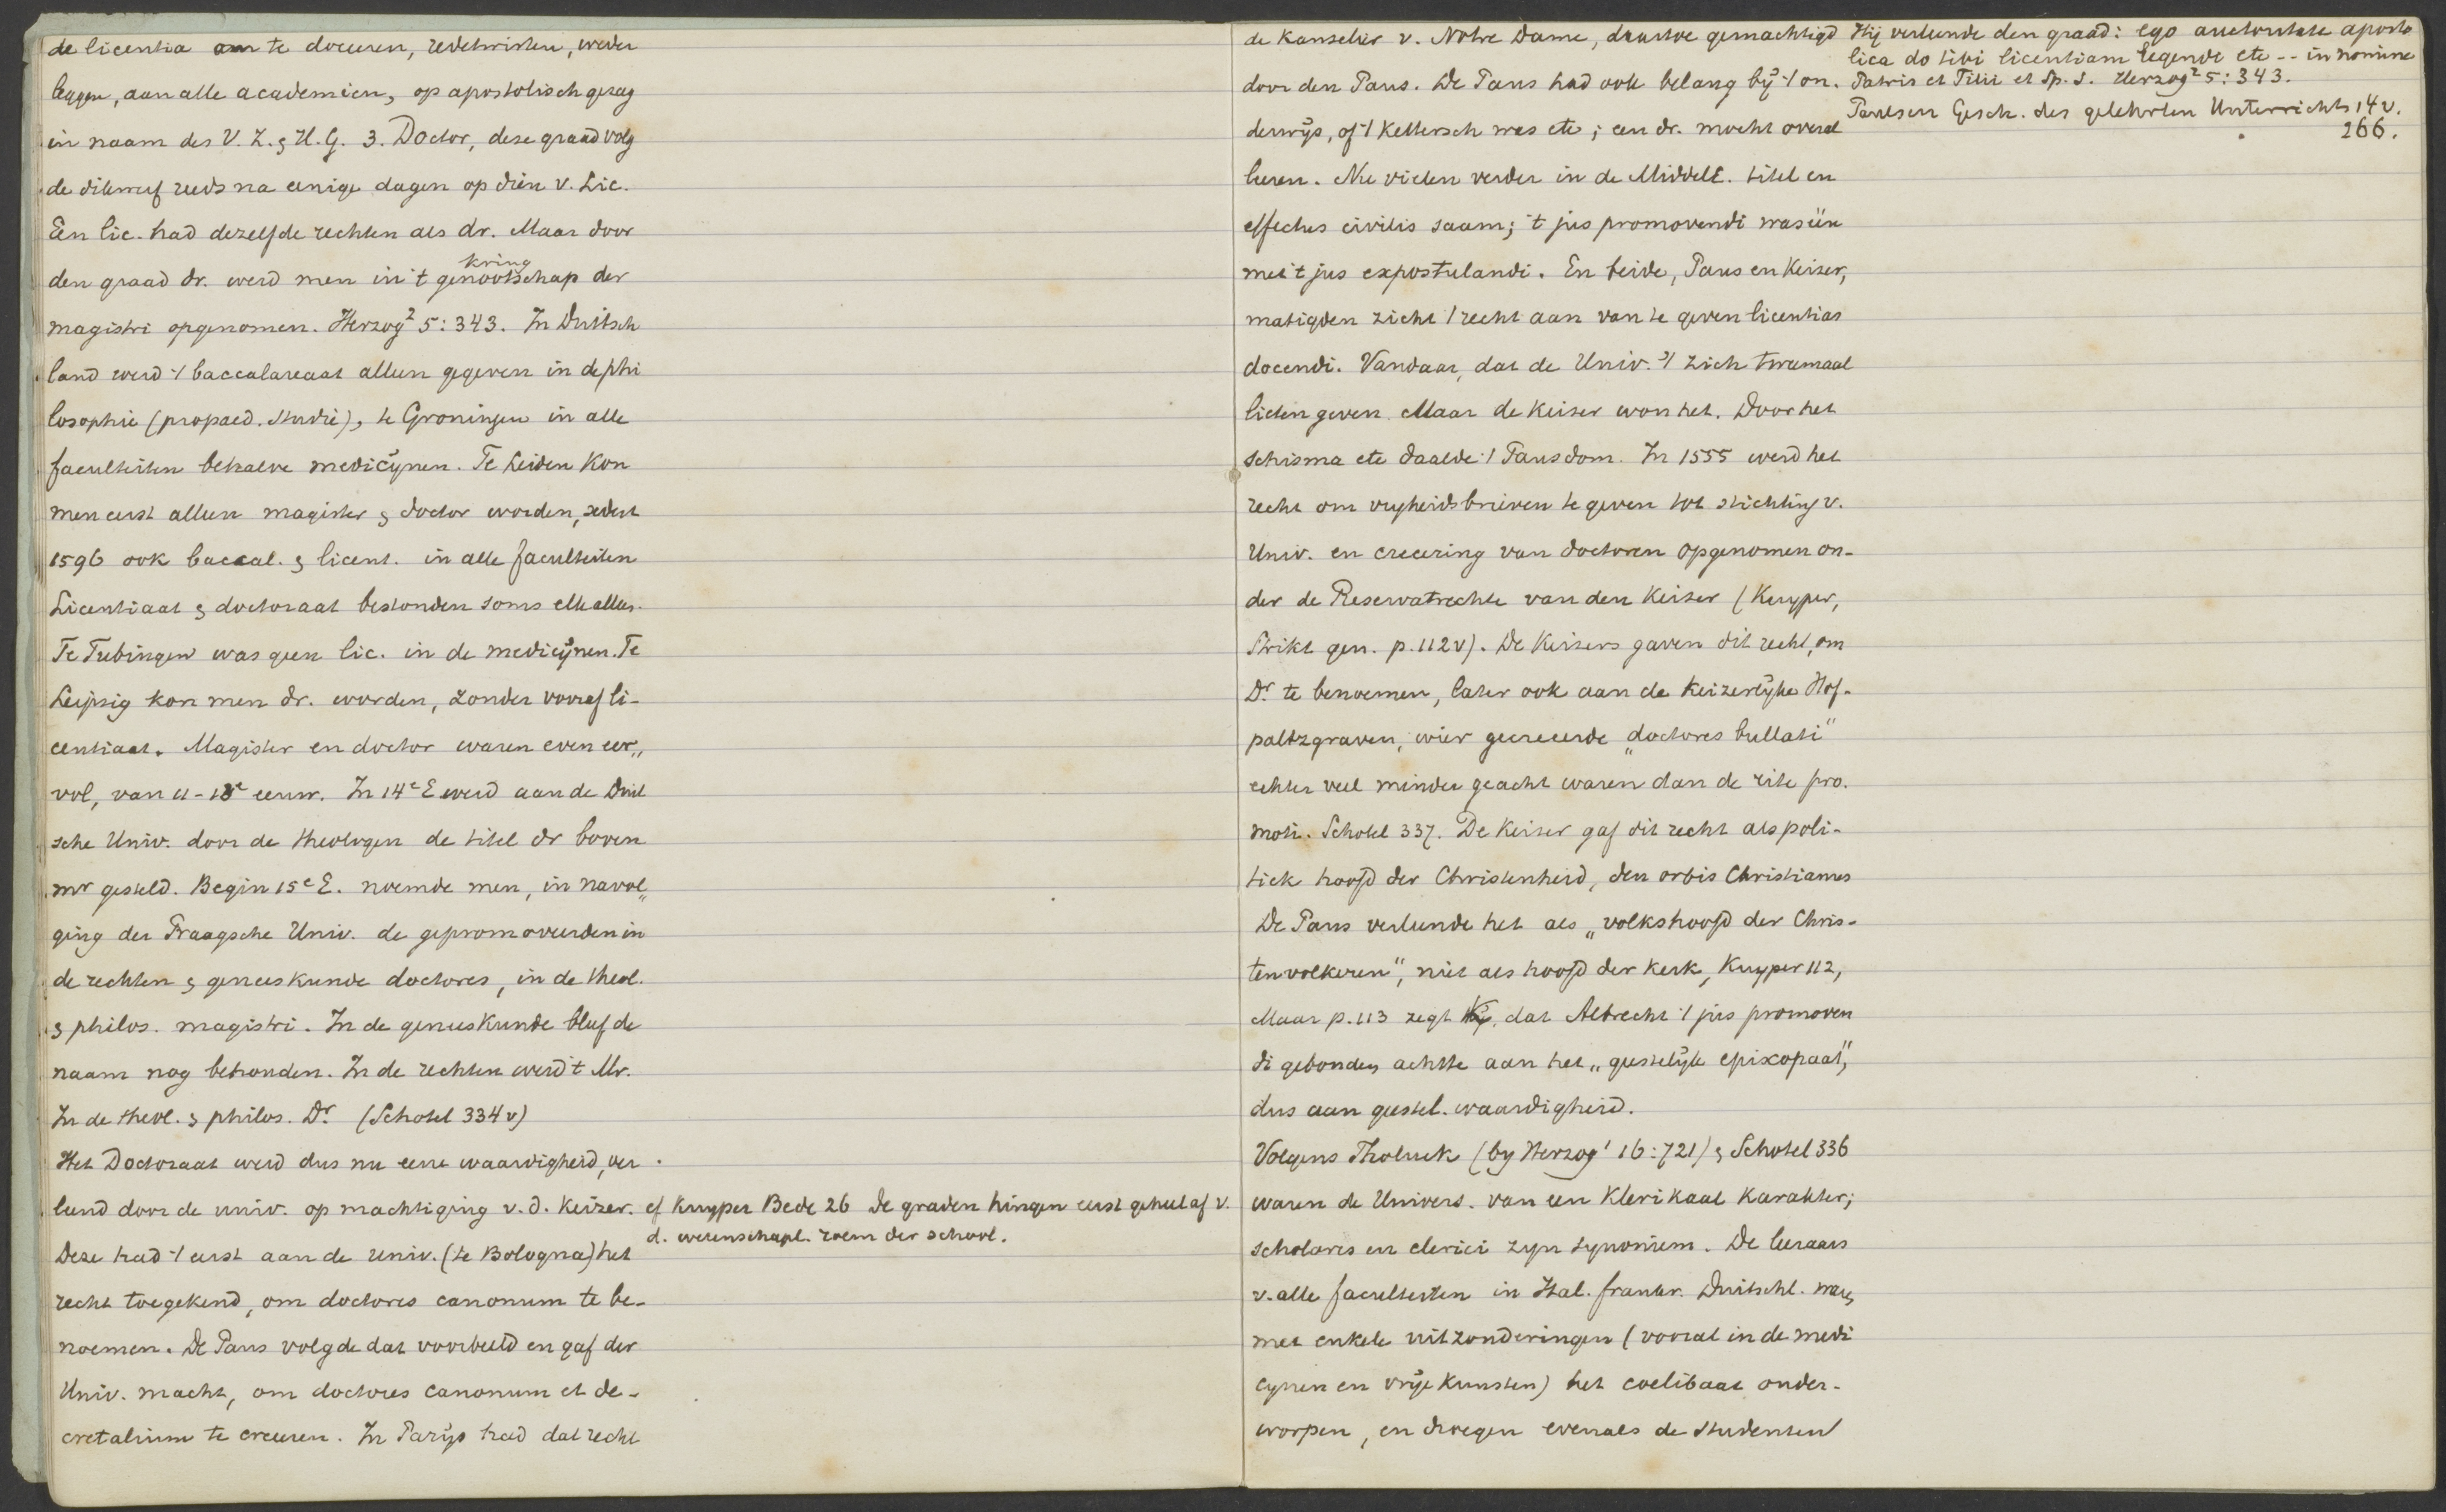 de licentia om te doceeren, redetwisten, weder
leggen, aan alle academien, op apostolisch gezag
in naam des V. Z. & H. G. 3. Doctor, deze graad volg
de dikwerf reeds na eenige dagen op dien v. Lic.
Een lic. had dezelfde rechten als dr. Maar door
kring
den graad dr. werd men in 't genootschap der
magistri opgenomen. Herzog² 5:343. In Duitsch
land werd 't baccalareaat alleen gegeven in de phi
losophie (propaed. studie), te Groningen in alle
faculteiten behalve medicijnen. Te Leiden kon
men eerst alleen magister & doctor worden, sedert
1596 ook baccal. & licent. in alle faculteiten
Licentiaat & doctoraat bestonden soms elk alleen.
Te Tubingen was geen lic. in de medicijnen. Te
Leipsig kon men dr. worden, zonder vooraf li-
centiaat. Magister en doctor waren even eer„
vol, van 11-13e eeuw. In 14e E werd aan de Duit
sche Univ. door de theologen de titel dr boven
mr gesteld. Begin 15e E. noemde men, in navol„
ging der Praagsche Univ. de gepromoveerden in
de rechten & geneeskunde doctores, in de theol.
& philos. magistri. In de geneeskunde bleef de
naam nog behouden. In de rechten werd 't Mr.
In de theol. & philos. Dr (Schotel 334v)
Het Doctoraat werd dus nu eene waardigheid, ver
leend door de univ. op machtiging v. d. Keizer.
Deze had 't eerst aan de univ. (te Bologna) het
recht toegekend, om doctores canonum te be-
noemen. De Paus volgde dat voorbeeld en gaf der
Univ. macht, om doctores canonum et de-
cretalium te creeeren. In Parijs had dat recht
cf Kuyper Bede 26 de graden hingen eerst geheel af v.
d. wetenschapl. roem der school.
de kanselier v. Notre Dame, daartoe gemachtigd
door den Paus. De Paus had ook belang bij 't on-
derwijs, of 't kettersch was etc; een dr. mocht overal
leeren. Nu vielen verder in de MiddelE. titel en
effectus civilis saam; 't jus promovendi was één
met 't jus expostulandi. En beide, Paus en Keizer,
matigden zich 't recht aan van te geven licentias
docendi. Vandaar, dat de Univ. 't zich tweemaal
lieten geven. Maar de Keizer won het. Door het
schisma etc daalde 't Pausdom. In 1555 werd het
recht om vrijheidsbrieven te geven tot stichting v.
Univ. en creeering van doctoren opgenomen on-
der de Reservatrechte van den Keizer (Kuyper,
Strikt gen. p. 112v). De Keizers gaven dit recht, om
Dr. te benoemen, later ook aan de Keizerlijke Hof-
paltzgraven, wier gecreeerde „doctores bullati"
echter veel minder geacht waren dan de rite pro-
moti. Schotel 337. De Keizer gaf dit recht als poli-
tiek hoofd der Christenheid, den orbis Christianus
De Paus verleende het als „volkshoofd der Chris-
tenvolkeren", niet als hoofd der kerk, Kuyper 112,
Maar p. 113 zegt Ky, dat Albrecht 't jus promoven
di gebonden achtte aan het „geestelijk episcopaat",
dus aan geestel. waardigheid.
Volgens Tholuck (by Herzog¹ 16:721) & Schotel 336
waren de Univers. van een Klerikaal Karakter;
scholares en clerici zijn synoniem. De leeraars
v. alle faculteiten in Ital. Frankr. Duitschl. waren
met enkele uitzonderingen (vooral in de medi
cynen en vrije Kunsten) het coelibaat onder-
worpen, en droegen evenals de studenten
Hij verleende den graad: ego auctoritate aposto
lica do tibi licentiam legendi etc -- in nomine
Patris et Filii et Sp. S. Herzog² 5:343.
Paulsen Gesch. des gelehrten Unterrichts 14v.
266.